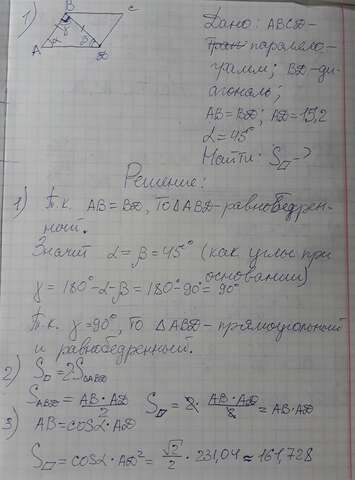 1)
B
C
γ
A
α
β
D
Дано: ABCD-
паралело-
грамм; BD-ди-
агональ;
AB=BD; AD=15,2
α=45°
Найти: S▱-?
Решение:
1) Т.к. AB=BD, то ΔABD-равнобедрен-
ный.
Значит α=β=45° (как углы при
основании)
γ=180°-α-β=180°-90°=90°
Т.к. γ=90°, то ΔABD-прямоугольный
и равнобедренный.
2) S▱=2SΔABD
SABD=AB·AD/2 S▱=2·AB·AD/2=AB·AD
3) AB=cosα·AD
S▱=cosα·AD²=√2/2·231,04≈161,728